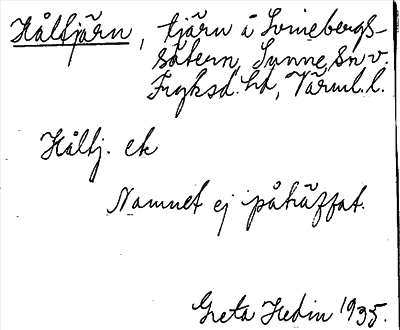 Håltjärn, tjärn å Lovisebergs-
sätern, Sunne sn v.
Fryksd. hd, Värml. l.
Håltj. ek
Namnet ej påträffat.
Greta Hedin 1935.